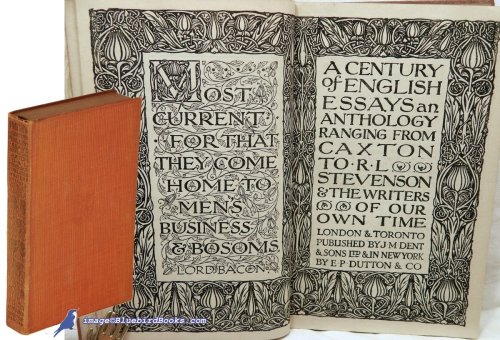 MOST
CURRENT
FOR THAT
THEY COME
HOME TO
MEN'S
BUSINESS
& BOSOMS
LORD BACON
A CENTURY
of ENGLISH
ESSAYS an
ANTHOLOGY
RANGING FROM
CAXTON
TO R L
STEVENSON
& THE WRITERS
OF OUR
OWN TIME
LONDON & TORONTO
PUBLISHED BY J M DENT
& SONS LTD & IN NEW YORK
BY E P DUTTON & CO
image©BluebirdBooks.com